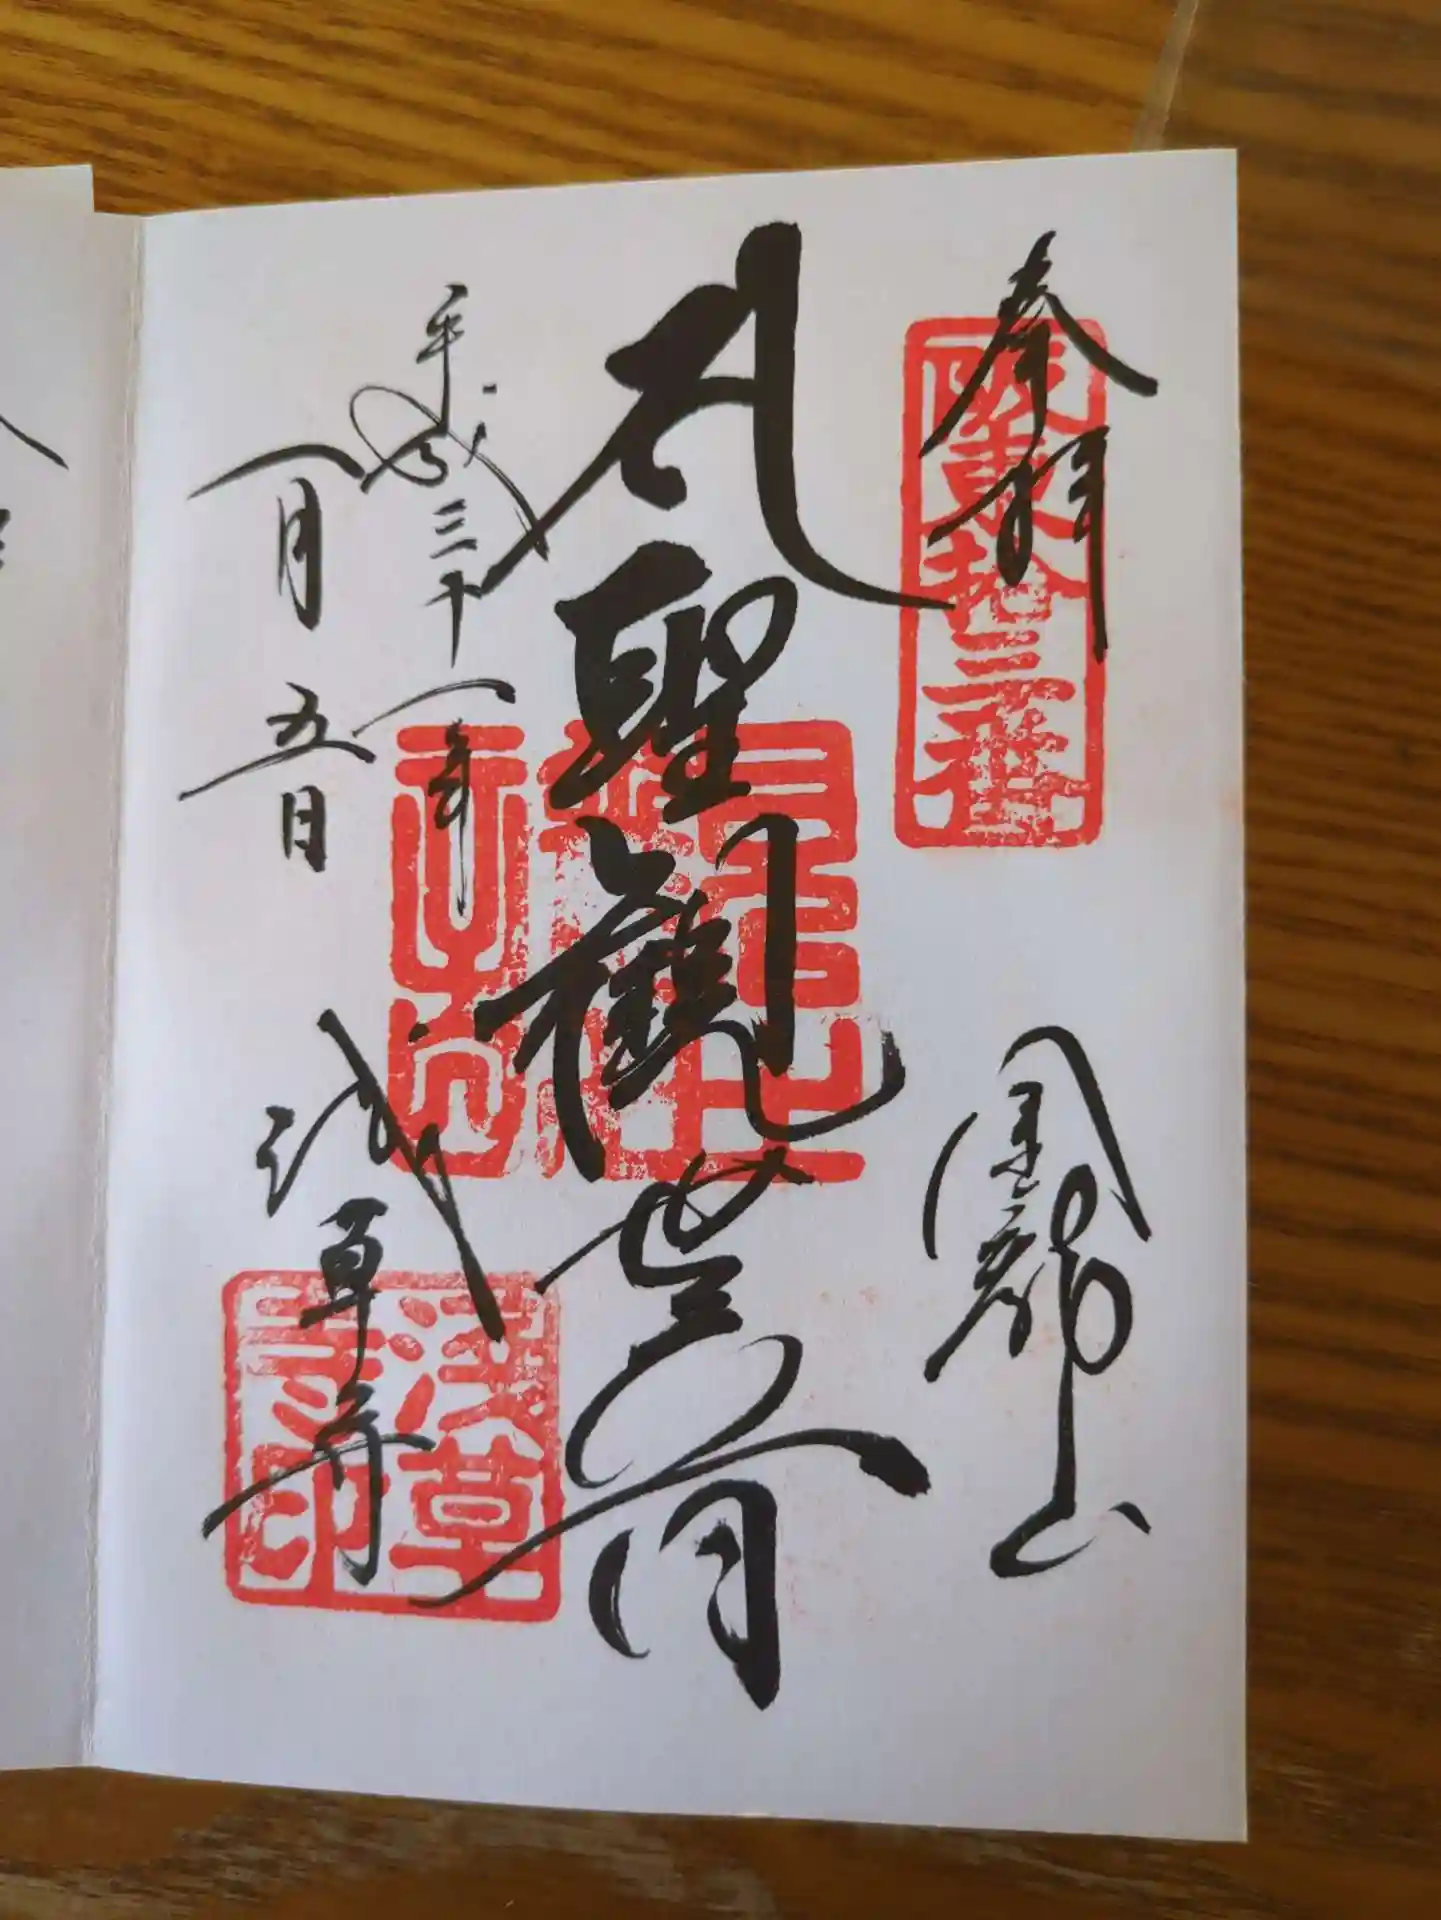 奉拝
金龍山
阪東拾三番
聖観世音
平成三十一年
一月五日
浅草寺
浅草
寺印